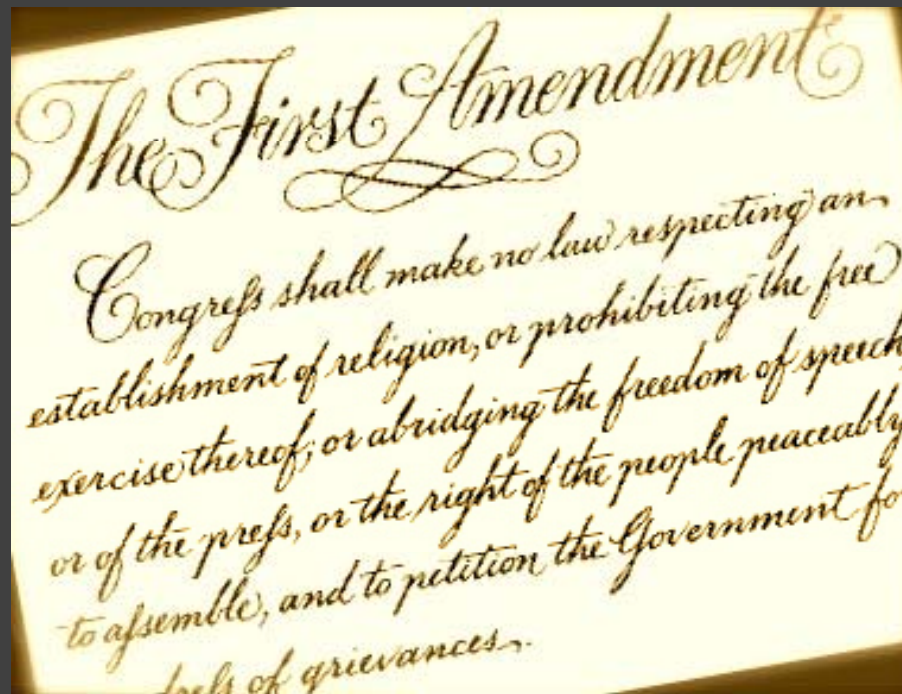 The First Amendment
Congreſs shall make no law respecting an
establishment of religion, or prohibiting the free
exercise thereof; or abridging the freedom of speech,
or of the preſs, or the right of the people peaceably
to aſsemble, and to petition the Government fo
dreſs of grievances.